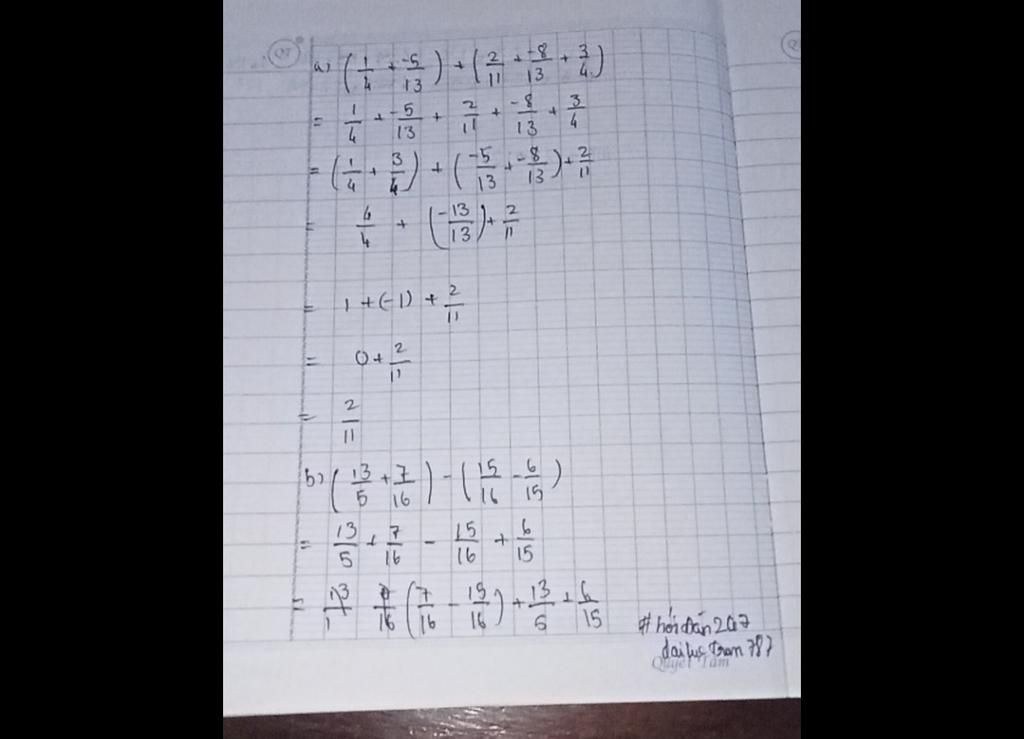 a) (1/4 + -5/13) + (2/11 + -8/13 + 3/4)
= 1/4 + -5/13 + 2/11 + -8/13 + 3/4
= (1/4 + 3/4) + (-5/13 + -8/13) + 2/11
= 4/4 + (-13/13) + 2/11
= 1 + (-1) + 2/11
= 0 + 2/11
= 2/11
b) (13/5 + 7/16) - (15/16 - 6/15)
= 13/5 + 7/16 - 15/16 + 6/15
= (7/16 - 15/16) + 13/5 + 6/15
# hỏi đáp 247
Quyết Tâm